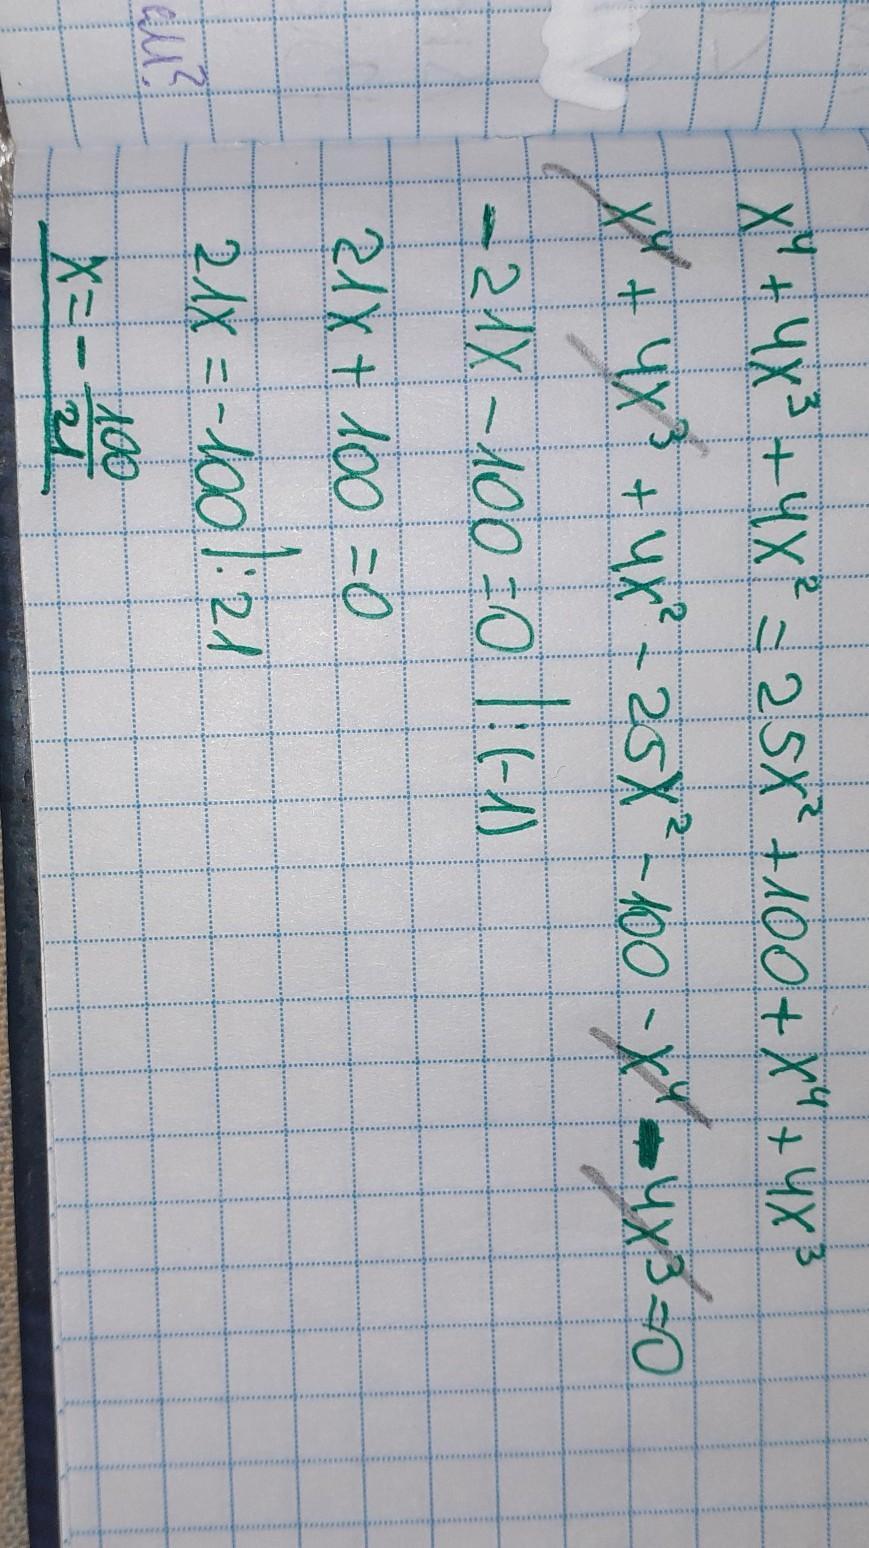 x⁴ + 4x³ + 4x² = 25x² + 100 + x⁴ + 4x³
x⁴ + 4x³ + 4x² - 25x² - 100 - x⁴ - 4x³ = 0
- 21x - 100 = 0 |:(-1)
21x + 100 = 0
21x = -100 |:21
x = - 100/21